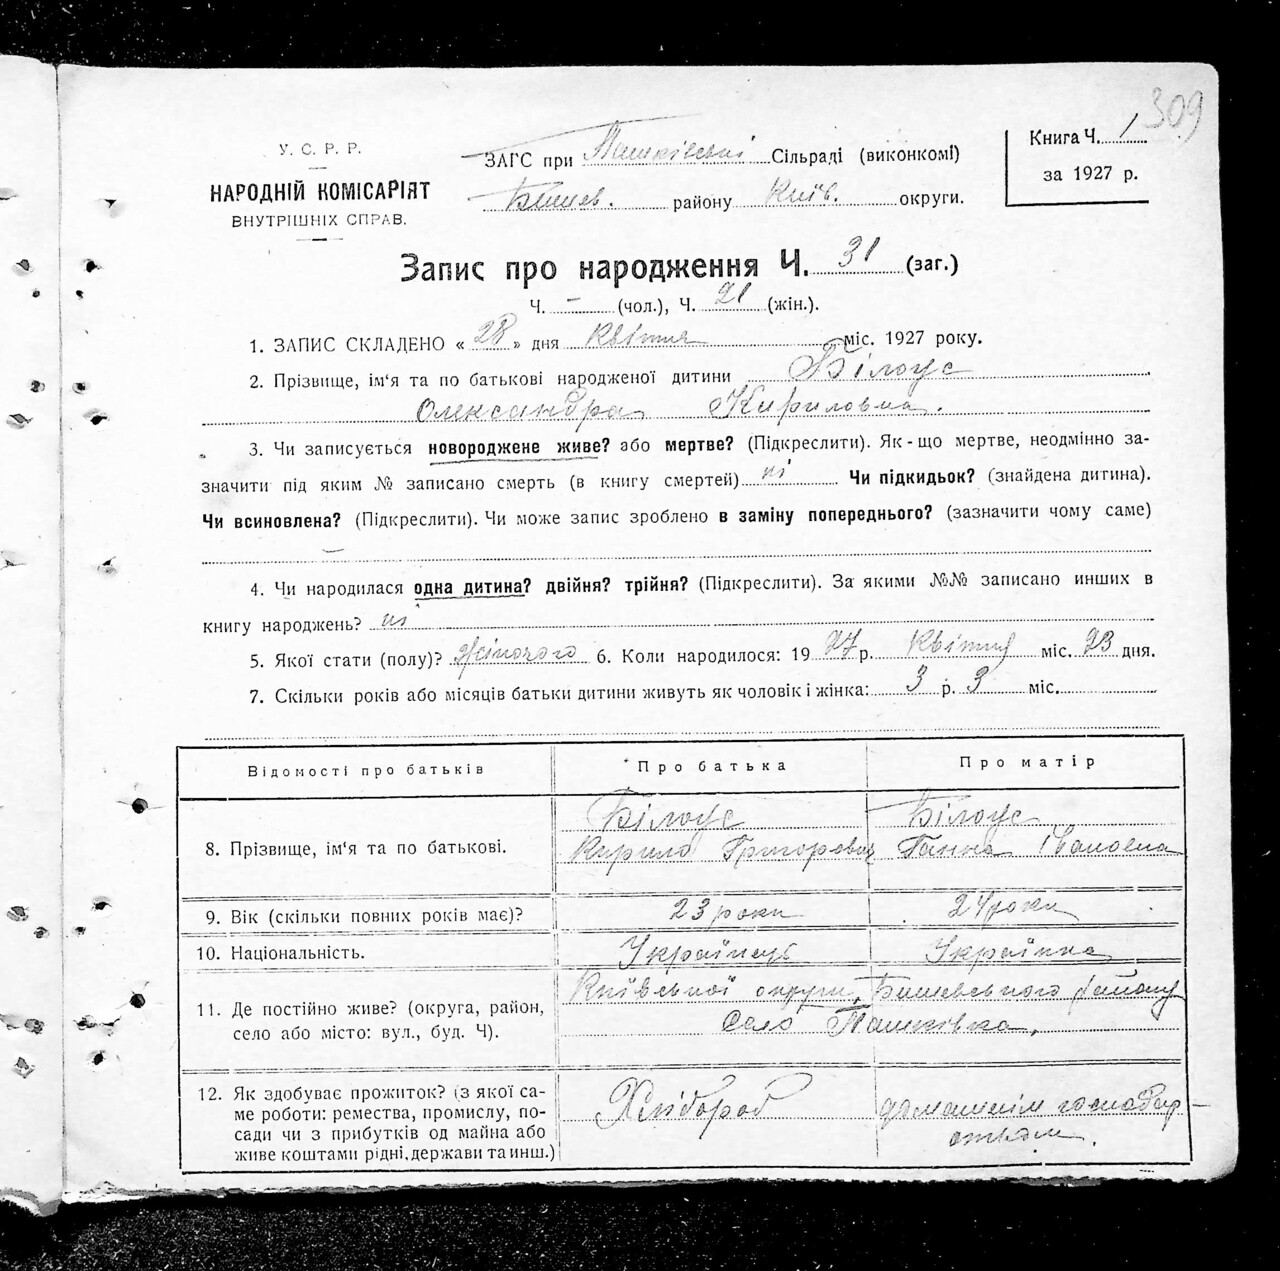 309
У. С. Р. Р.
НАРОДНІЙ КОМІСАРІЯТ
ВНУТРІШНІХ СПРАВ.
ЗАГС при Пашківські Сільраді (виконкомі)
Бишев. району Київ. округи.
Книга Ч. 1
за 1927 р.
Запис про народження Ч. 31 (заг.)
Ч. – (чол.), Ч. 21 (жін.).
1. ЗАПИС СКЛАДЕНО « 28 » дня квітня міс. 1927 року.
2. Прізвище, ім'я та по батькові народженої дитини Білоус
Олександра Кириловна.
3. Чи записується новороджене живе? або мертве? (Підкреслити). Як-що мертве, неодмінно за-
значити під яким № записано смерть (в книгу смертей) ні Чи підкидьок? (знайдена дитина).
Чи всиновлена? (Підкреслити). Чи може запис зроблено в заміну попереднього? (зазначити чому саме)
–
4. Чи народилася одна дитина? двійня? трійня? (Підкреслити). За якими №№ записано инших в
книгу народжень? ні
5. Якої стати (полу)? жіночого 6. Коли народилося: 1927 р. квітня міс. 23 дня.
7. Скільки років або місяців батьки дитини живуть як чоловік і жінка: 3 р. 3 міс.
Відомості про батьків Про батька Про матір
8. Прізвище, ім'я та по батькові. Білоус Кирило Григорович Білоус Ганна Івановна
9. Вік (скільки повних років має)? 23 роки 24 роки
10. Національність. Українець Українка
11. Де постійно живе? (округа, район, Київської округи, Бишевського району
село або місто: вул., буд. Ч). село Пашківка.
12. Як здобуває прожиток? (з якої са-
ме роботи: ремества, промислу, по-
сади чи з прибутків од майна або
живе коштами рідні, держави та инш.) Хлібороб домашнім господар-
ством.